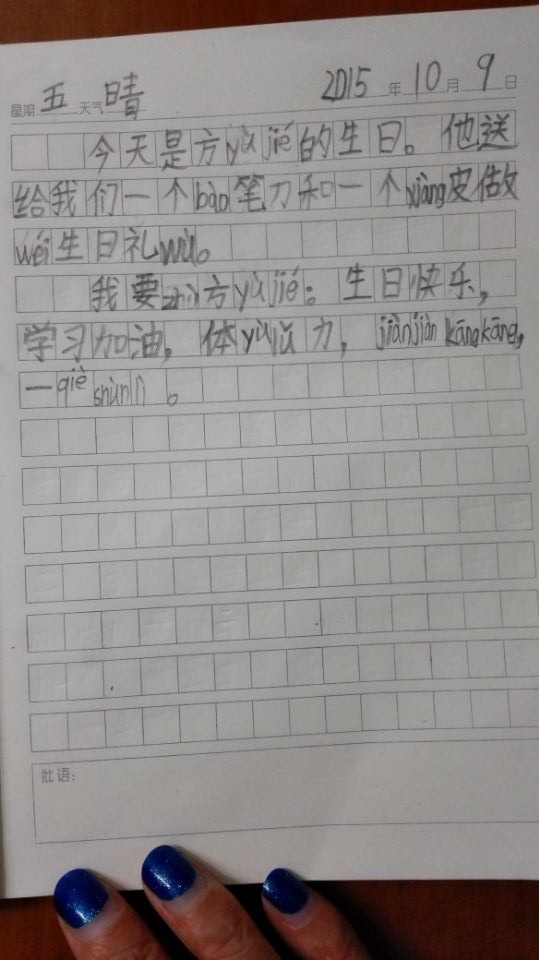 星期 五 天气 晴 2015 年 10 月 9 日
今天是方yù jié的生日。他送
给我们一个bào笔刀和一个xiàng皮做
wéi生日礼wù。
我要zhù方yù jié：生日快乐，
学习加油，体yù yǔ力，jiànjiàn kāngkāng，
一qiè shùnlì。
批语：